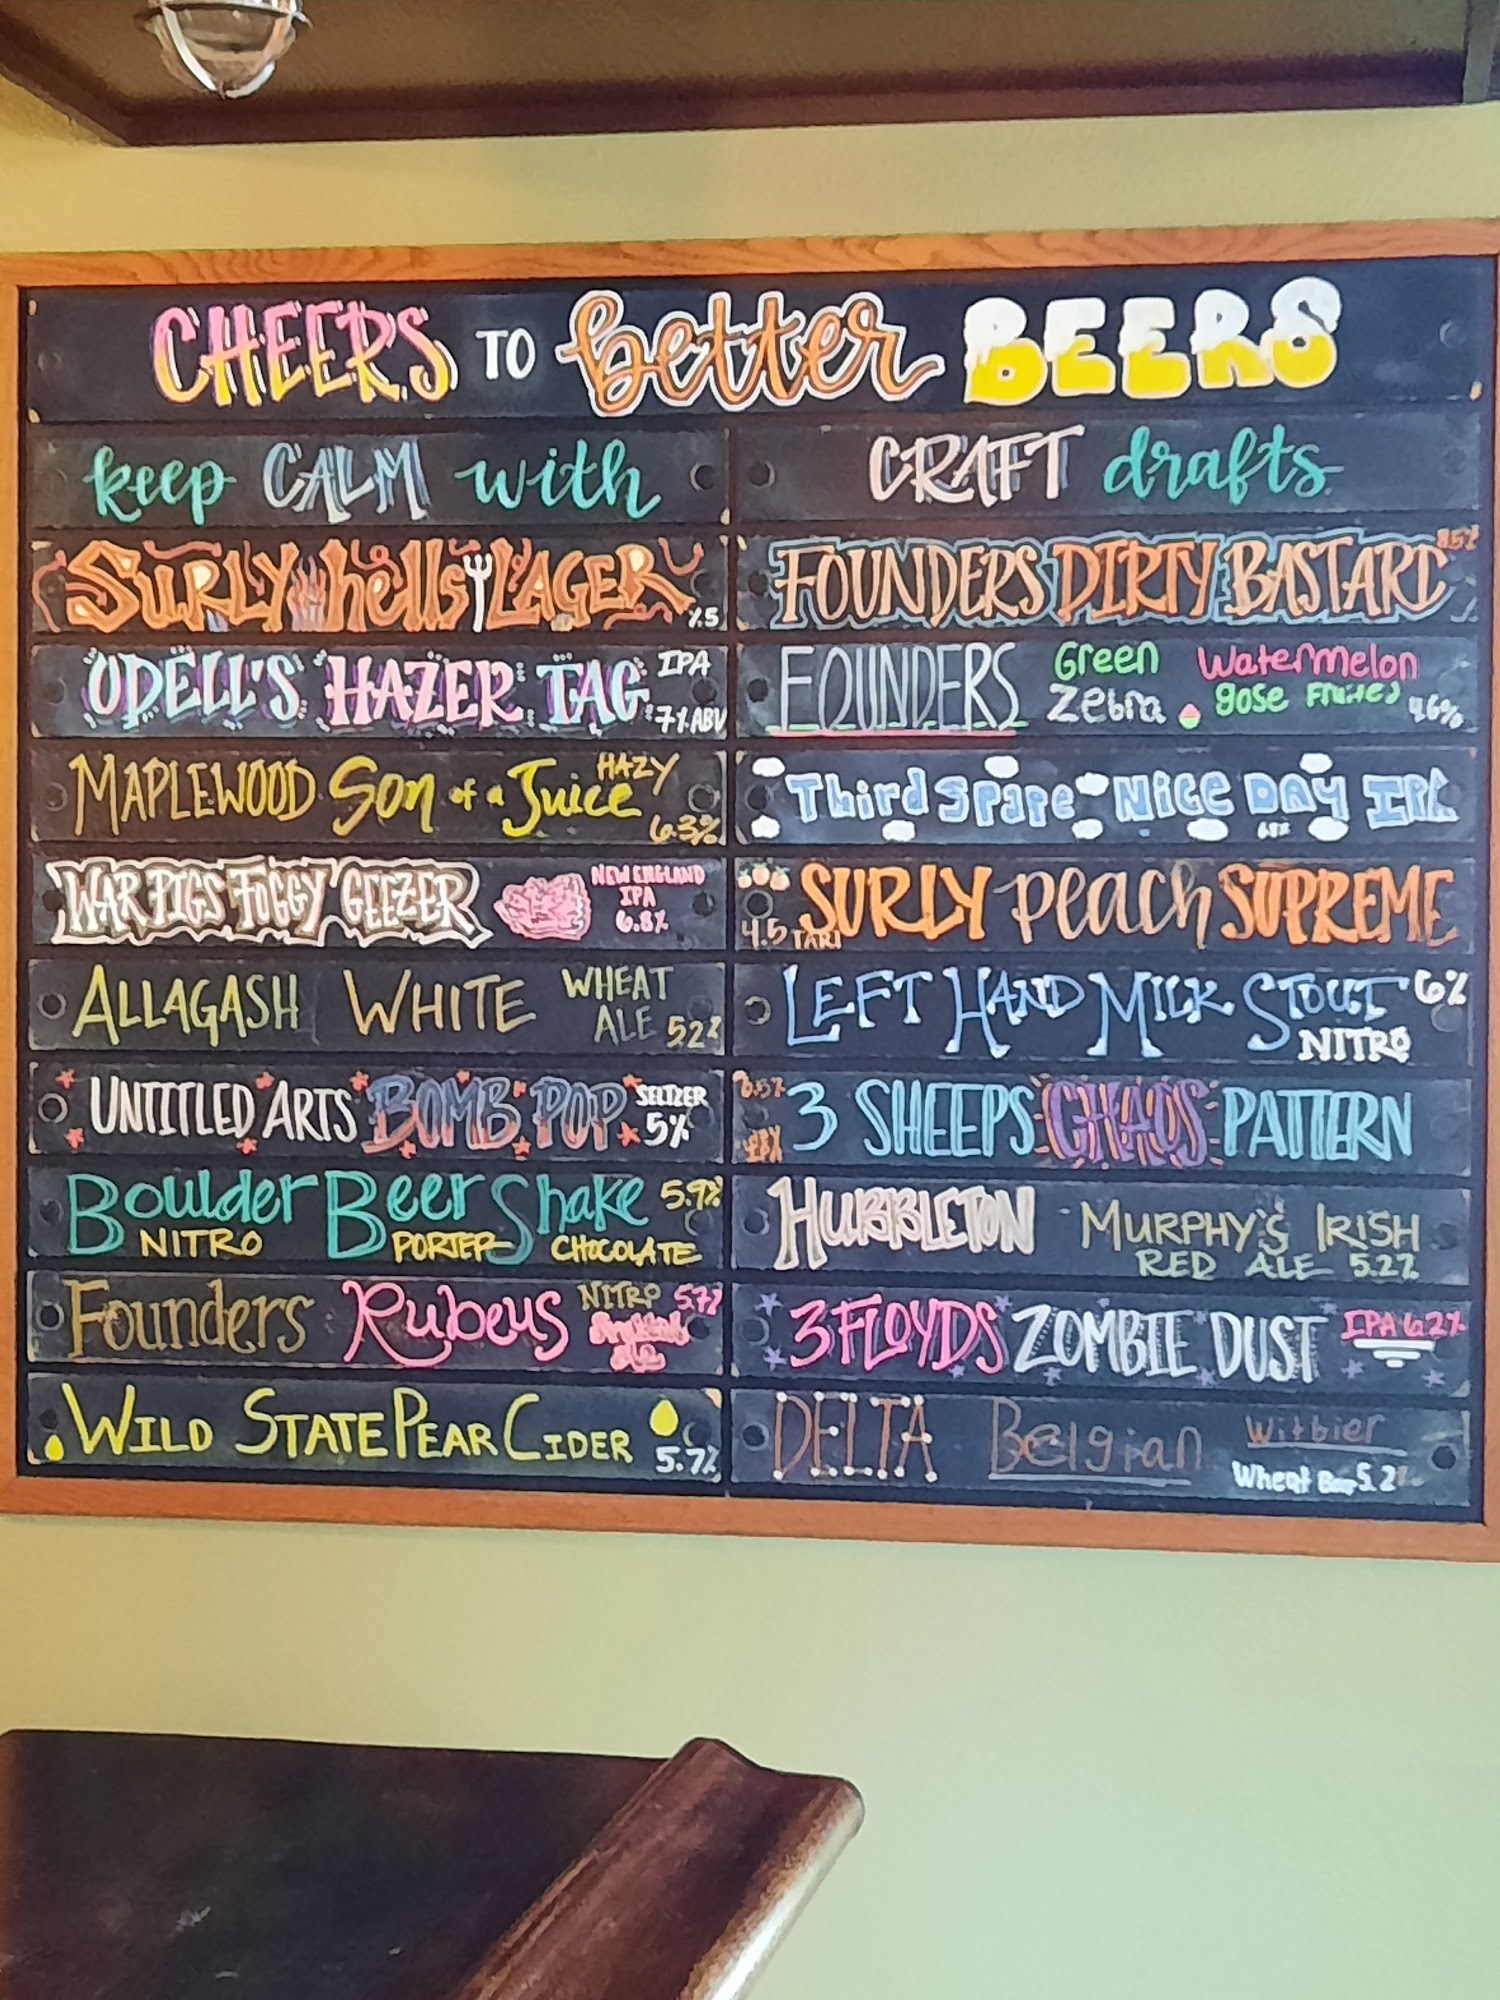 CHEERS TO better BEERS
keep CALM with
CRAFT drafts
SURLY hells LAGER %5
ODELL'S HAZER TAG IPA 7% ABV
MAPLEWOOD Son of a Juice HAZY 6.3%
WARPIGS FOGGY GEEZER NEW ENGLAND IPA 6.8%
ALLAGASH WHITE WHEAT ALE 5.2%
UNTITLED ARTS BOMB POP SELTZER 5%
Boulder Beer Shake 5.9%
NITRO PORTER CHOCOLATE
Founders Rubeus NITRO 5.7%
WILD STATE PEAR CIDER 5.7%
FOUNDERS DIRTY BASTARD 8.5%
FOUNDERS Green Zebra Watermelon gose Fruited 4.6%
Third Space Nice Day IPA
SURLY Peach SUPREME 4.5 TART
LEFT HAND MILK STOUT 6%
NITRO
3 SHEEPS CHAOS PATTERN 6.5% IPA
HUBBLETON MURPHY'S IRISH
RED ALE 5.2%
3 FLOYDS ZOMBIE DUST IPA 6.2%
DELTA Belgian Witbier
Wheat 5.2%